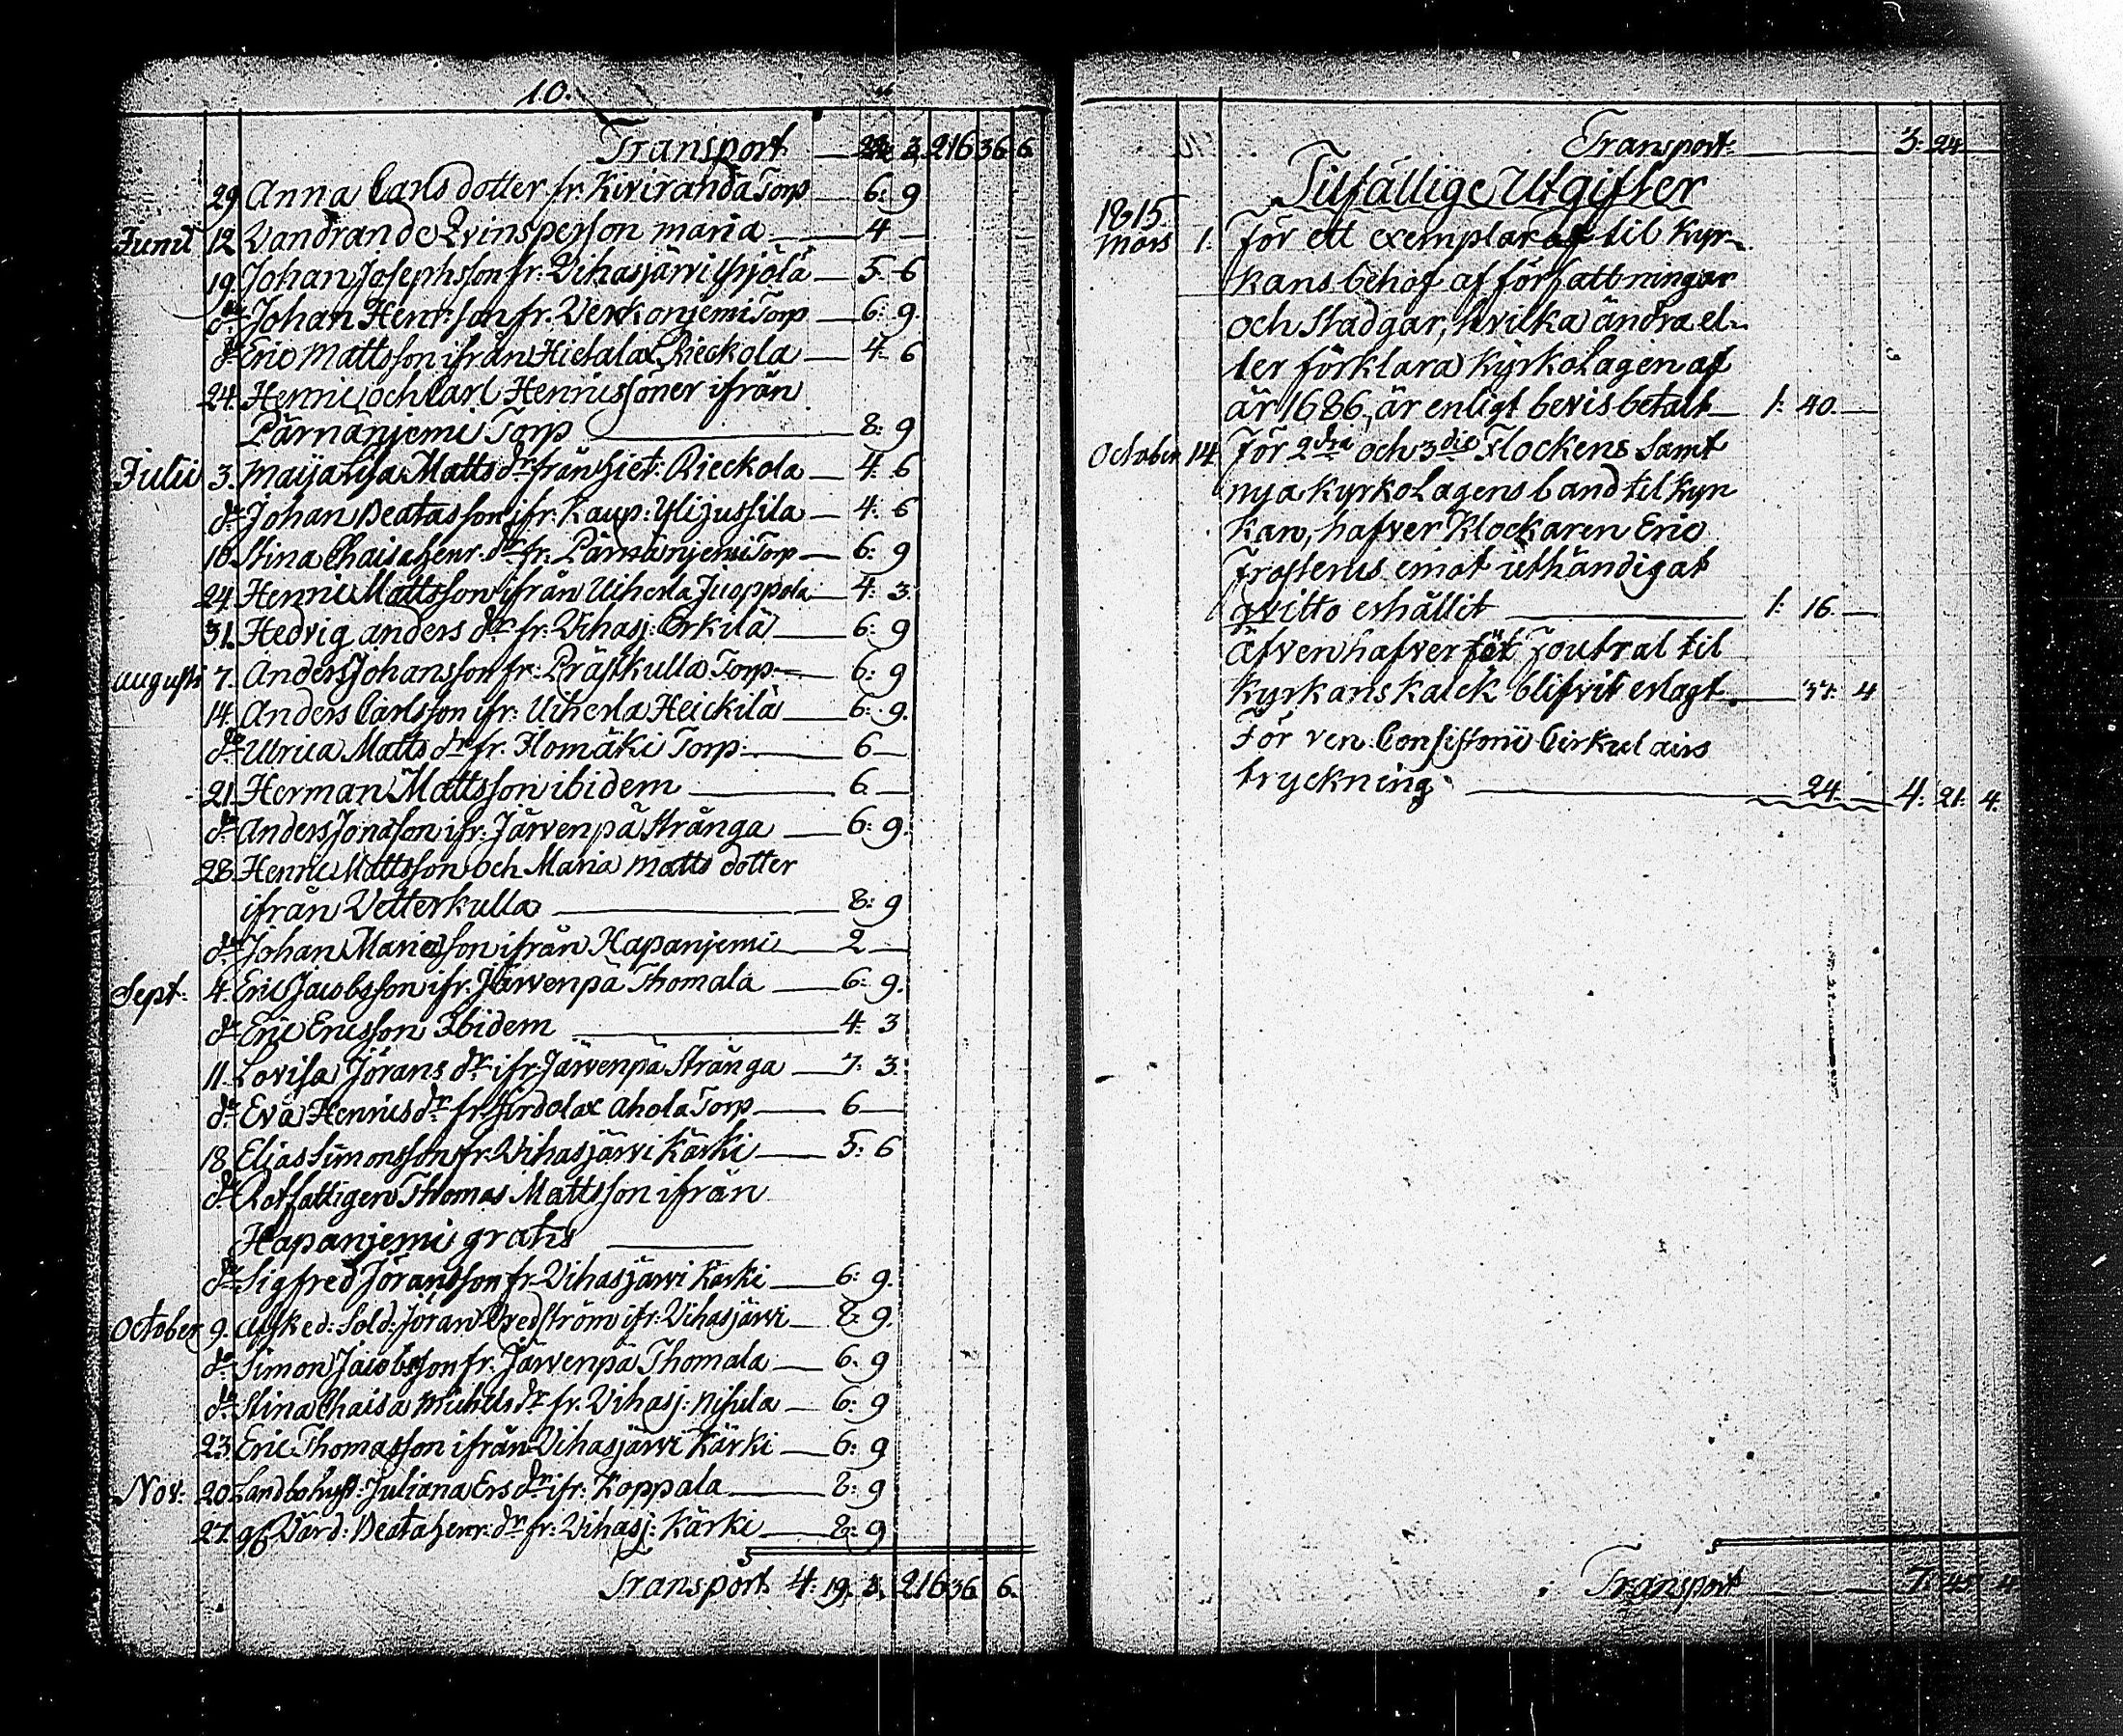 10.
Transport — 22 3 216 36 6
29 Anna Carlsdotter fr. Kiviranda Torp — 6: 9
Junii 12 Vandrande Qvinsperson Maria — 4 —
19. Johan Josephsson fr: Vihasjärvi Yljölä — 5 6
do Johan Henr:son fr. Verkonjemi Torp — 6: 9
do Eric Mattsson ifrån Hietalax Rieckola — 4: 6
24. Henric och Carl Henricssöner ifrån
Pärnänjemi Torp — 8: 9
Julii 3. Maija Lisa Matts dr från Hiet: Rieckola — 4: 6
do Johan Beatasson ifr. Kaup: Ylijussila — 4: 6
10. Stina Chaisa Henr. dr fr. Pärnänjemi Torp — 6: 9
24. Henric Mattsson ifrån Uiherla Juoppola — 4: 3
31. Hedvig Anders dr fr: Vihasj: Erkilä — 6: 9
Augusti 7. Anders Johansson fr: Prästkulla Torp — 6: 9
14. Anders Carlsson ifr: Uiherla Heickilä — 6: 9.
do Ulrica Matts dr fr. Homäki Torp — 6 —
21. Herman Mattsson ibidem — 6 —
do Anders Jonasson ifr: Järvenpä Stränga — 6: 9.
28. Henric Mattsson och Maria Matts dotter
ifrån Vetterkulla — 8: 9
do Johan Mariæson ifrån Hapanjemi — 2 —
Sept: 4. Eric Jacobsson ifr: Järvenpä Thomala — 6: 9.
do Eric Ericsson Ibidem — 4: 3
11. Lovisa Jörans dr ifr. Järvenpä Stränga — 7: 3.
do Eva Henrics dr fr. Hirdolax Ahola Torp — 6 —
18. Elias Simonsson fr. Vihasjärvi Kärki — 5: 6
do Rotfattigen Thomas Mattsson ifrån
Hapanjemi gratis —
do Sigfred Jöransson fr. Vihasjärvi Kärki — 6: 9.
October 9. Afsked: Sold: Jöran Bredström ifr: Vihasjärvi — 8: 9.
do Simon Jacobsson fr. Järvenpä Thomala — 6. 9
do Stina Chaisa Michels dr fr. Vihasj: Nisula — 6: 9
23. Eric Thomasson ifrån Vihasjärvi Kärki — 6: 9
Nov: 20. Landbohust: Juliana Ers dr ifr: Koppala — 8: 9
27. Värd: Beata Henr: dr fr: Vihasj: Kärki — 8: 9
Transport 4: 19. 3. 216 36 6.
Transport — 3: 24
Tilfällige Utgifter
1815
Mars 1. För ett exemplar af til Kyr-
kans behof af författningar
och Stadgar, hvilka ändra el-
ler förklara Kyrkolagen af
år 1686, är enligt bevis betalt — 1: 40. —
October 14 För 2dra och 3die Flockens samt
nya Kyrkolagens band til Kyr
kan, hafver Klockaren Eric
Frosterus emot uthändigat
qvitto erhållit — 1: 16. —
Äfven hafver för Foutral til
Kyrkans Kalck blifvit erlagt — 37: 4
För ven: Consistorii Cirkulairs
tryckning — 24 — 4: 21: 4.
Transport — 7: 45 4